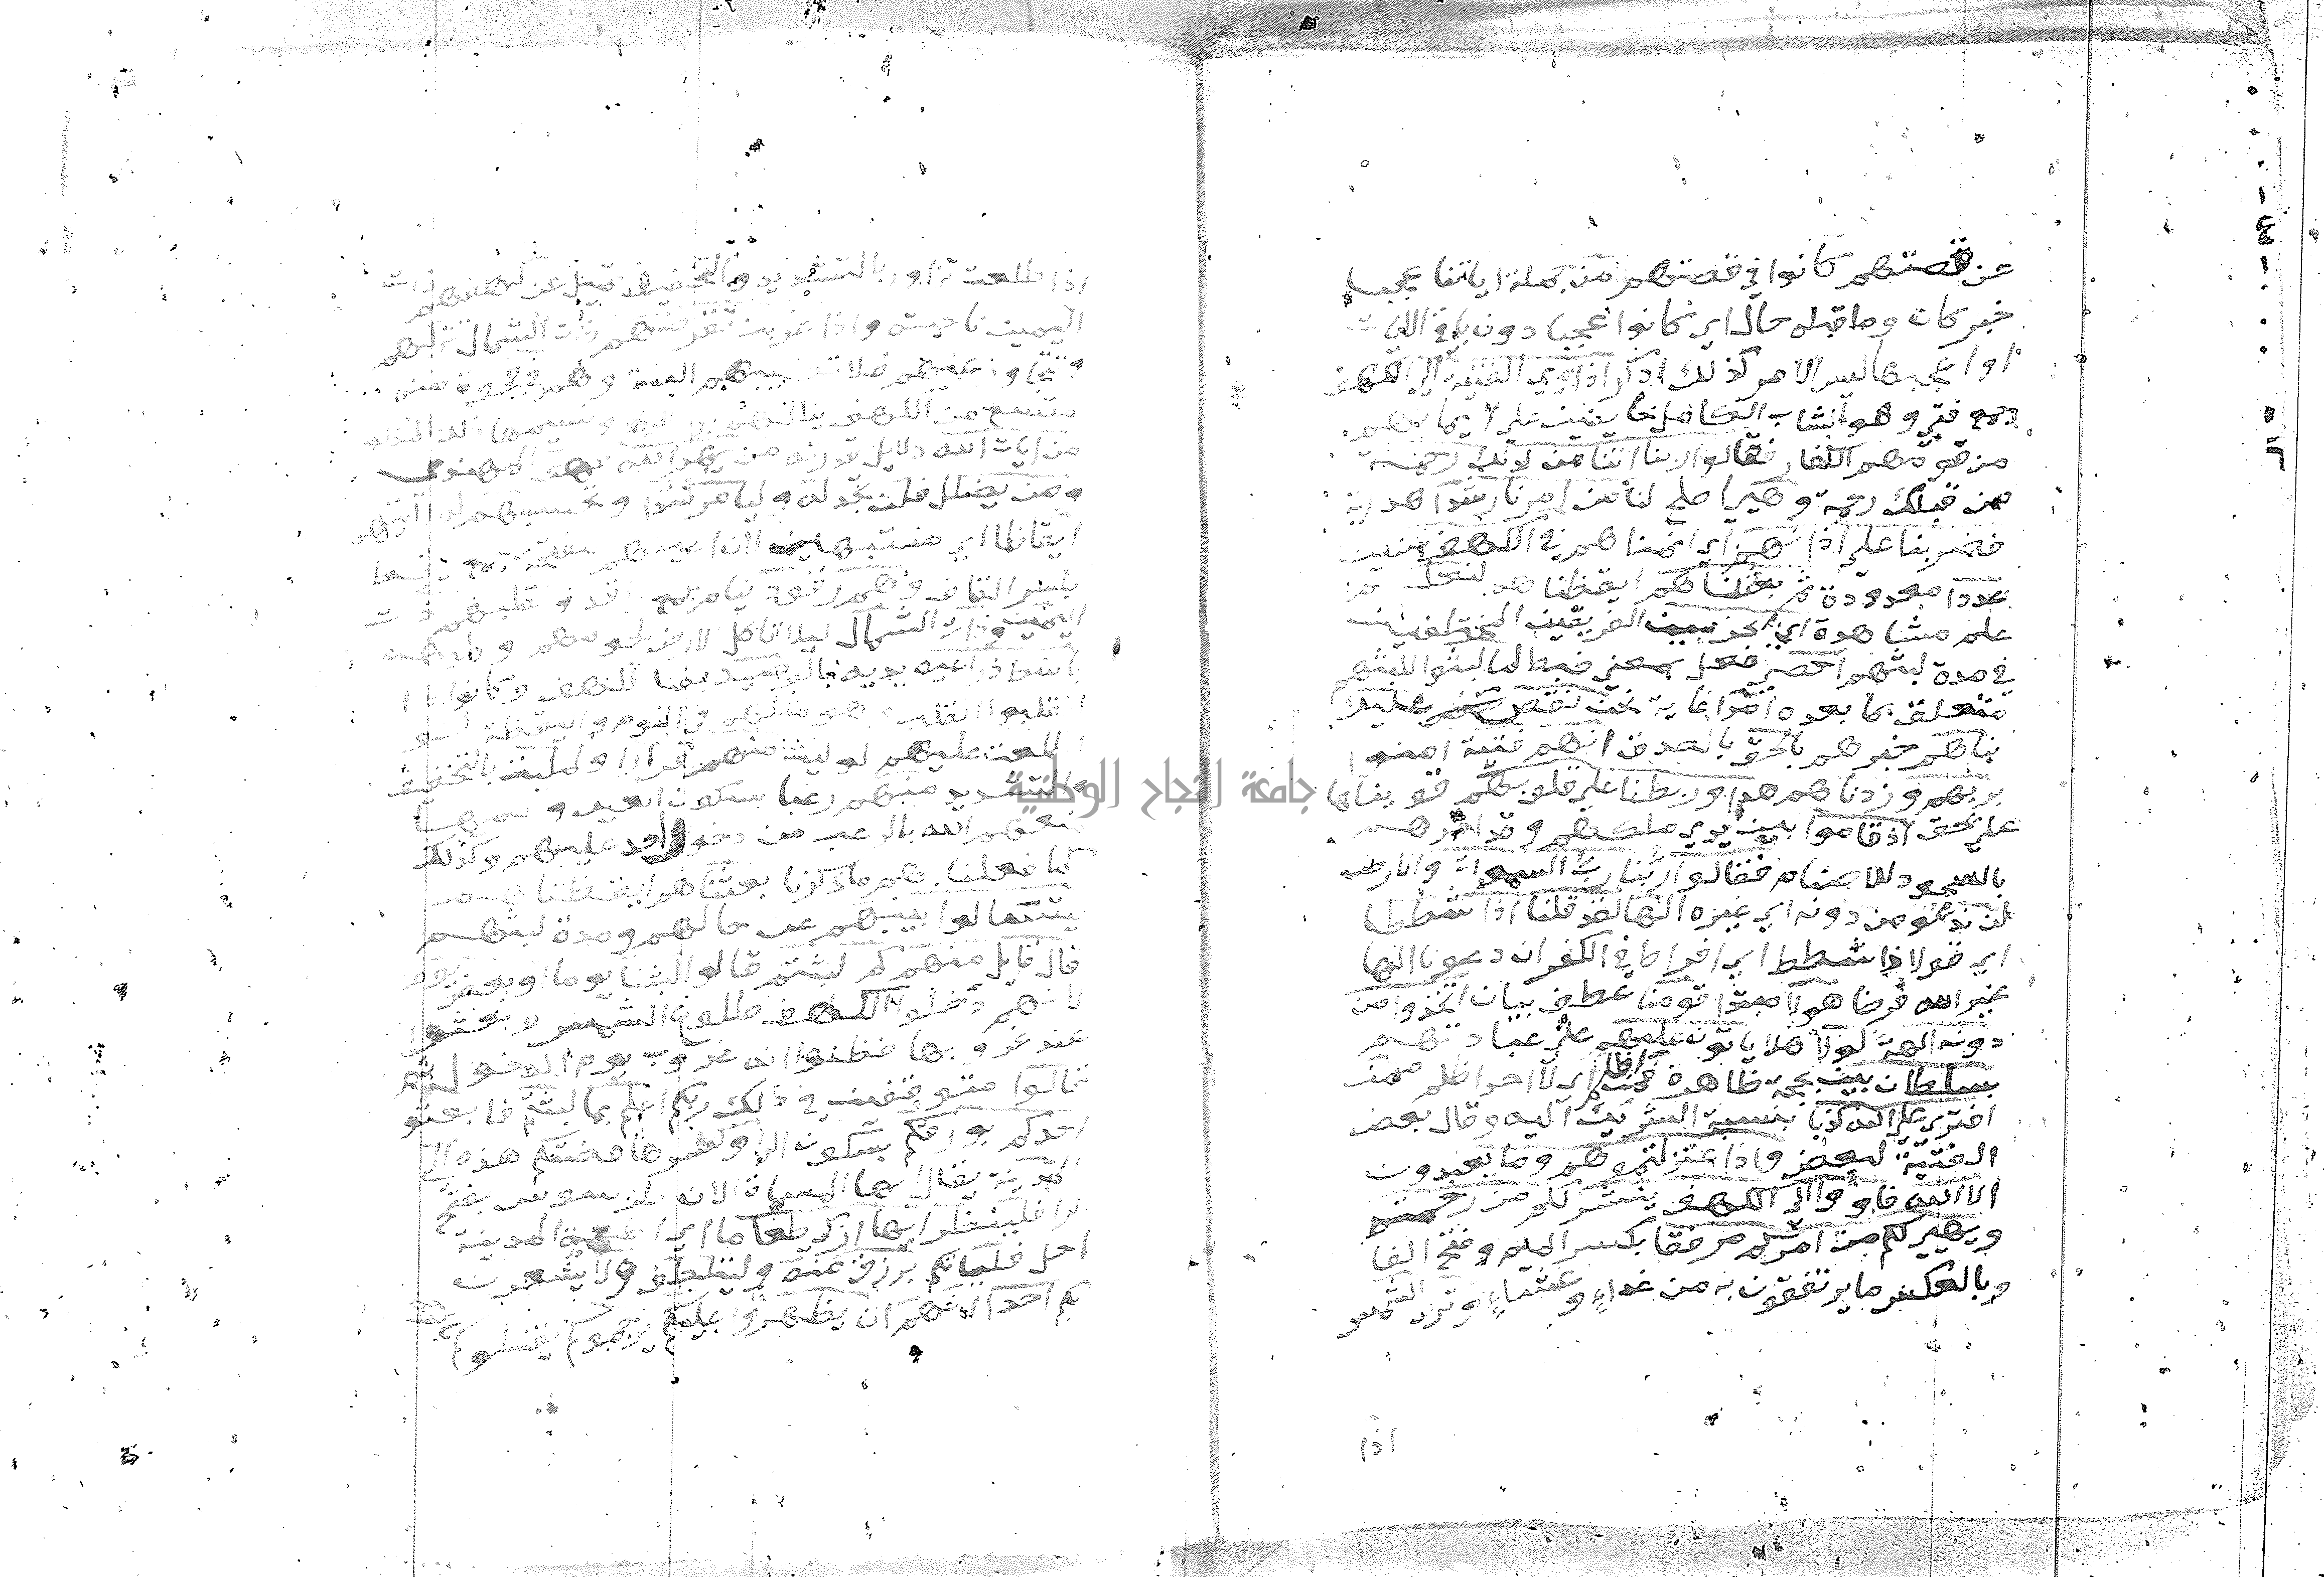 عن قصتهم كانوا في قصتهم من جملة اياتنا عجبا
خبر كان وما قبله حال اي كانوا عجبا دون باقي الايات
او اعجبها ليس الامر كذلك اذكر اذ اوي الفتية الي الكهف
جمع فتي وهو الشاب الكامل خايفين علي ايمانهم
من قومهم الكفار فقالوا ربنا اتنا من لدنك رحمة
من قبلك رحمة وهيي اصلح لنا من امرنا رشدا هداية
فضربنا علي اذانهم اي انمناهم في الكهف سنين
عددا معدودة ثم بعثناهم ايقظناهم لنعلم
علم مشاهدة اي الحزبين الفريقين المختلفين
في مدة لبثهم احصي فعل بمعني ضبط لما لبثوا للبثهم
متعلق بما بعده امدا غاية نحن نقص عليك
نباهم خبرهم بالحق بالصدق انهم فتية امنوا
بربهم وزدناهم هدي وربطنا علي قلوبهم قويناها
علي الحق اذ قاموا بين يدي ملكهم وقد امرهم
بالسجود للاصنام فقالوا ربنا رب السموات والارض
لن ندعو من دونه اي غيره الها لقد قلنا اذا شططا
اي قولا ذا شطط اي افراط في الكفر ان دعونا الها
غير الله فرضا هولا مبتدا قومنا عطف بيان اتخذوا من
دونه الهة لولا هلا ياتون عليهم علي عبادتهم
بسلطان بين بحجة ظاهرة فمن اظلم اي لا احد اظلم ممن
افتري علي الله كذبا بنسبة الشريك اليه وقال بعض
الفتية لبعض واذا عتزلتموهم وما يعبدون
الا الله فاووا الي الكهف ينشر لكم من رحمته
ويهيي لكم من امركم مرفقا بكسر الميم وفتح الفا
وبالعكس ما يرتفقون به من غداء وعشاء وتري الشمس
اذا
اذا طلعت تزاور بالتشديد والتخفيف تميل عن كهفهم ذات
اليمين ناحيته واذا غربت تقرضهم ذات الشمال تتركهم
وتتجاوز عنهم فلا تصيبهم البتة وهم في فجوة منه
متسع من الكهف ينالهم برد الريح ونسيمها ذلك المذكور
من ايات الله دلايل قدرته من يهد الله فهو المهتدي
ومن يضلل فلن تجد له وليا مرشدا وتحسبهم لو رايتهم
ايقاظا اي منتبهين لان اعينهم مفتحة جمع يقظ
بكسر القاف وهم رقود نيام جمع راقد ونقلبهم ذات
اليمين وذات الشمال ليلا تاكل الارض لحومهم وكلبهم
باسط ذراعيه يديه بالوصيد بفنا الكهف وكانوا اذا
انقلبوا انقلب وهو مثلهم في النوم واليقظة لو
اطلعت عليهم لوليت منهم فرارا ولمليت بالتخفيف
والتشديد منهم رعبا بسكون العين وضمها
منعهم الله بالرعب من دخول احد عليهم وكذلك
كما فعلنا بهم ما ذكرنا بعثناهم ايقظناهم
ليتسالوا بينهم عن حالهم ومدة لبثهم
قال قايل منهم كم لبثتم قالوا لبثنا يوما او بعض يوم
لانهم دخلوا الكهف طلوع الشمس وبعثوا
عند غروبها فظنوا انه غروب يوم الدخول ثم
قالوا متوقفين في ذلك ربكم اعلم بما لبثتم فابعثوا
احدكم بورقكم بسكون الرا وكسرها بفضتكم هذه الي
المدينة يقال انها المسماة الان طرسوس بفتح
الرا فلينظر ايها ازكي طعاما اي اي اطعمة المدينة
احل فلياتكم برزق منه وليتلطف ولا يشعرن
بكم احدا انهم ان يظهروا عليكم يرجموكم يقتلوكم
جامعة النجاح الوطنية